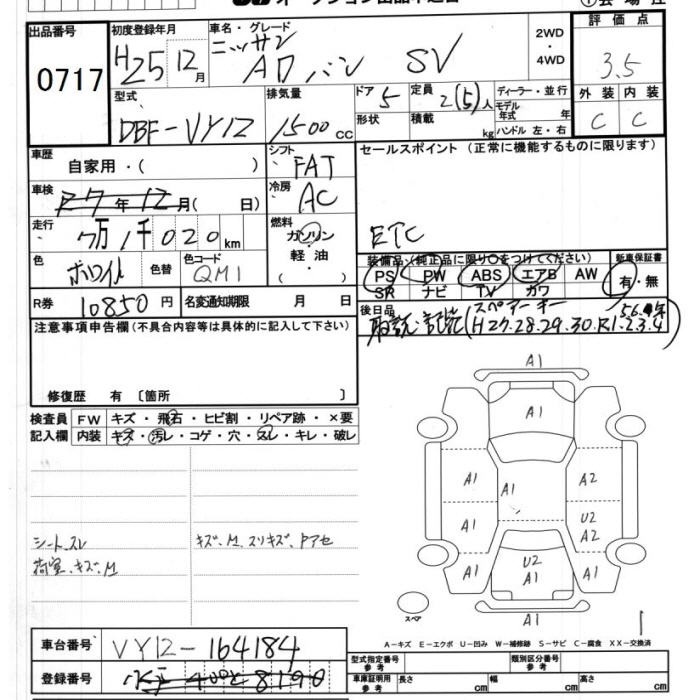 出品番号
0717
初度登録年月
H25 12月
車名・グレード
ニッサン
ADバン SV
2WD
・
4WD
評価点
3.5
外装 内装
C C
型式
DBF-VY12
排気量
1500cc
ドア 5
形状
定員 2(5)人
積載 kg
ディーラー・並行
モデル年式 年
ハンドル 左・右
車歴
自家用・( )
シフト
FAT
セールスポイント (正常に機能するものに限ります)
ETC
車検
27年12月( 日)
冷房
AC
走行
7万1千020km
燃料
ガソリン
軽油
・( )
色
ホワイト
色替
色コード
QM1
R券 10850円
名変通知期限 月 日
装備品(純正品に限り○をつけてください)
PS PW ABS エアB AW
SR ナビ TV カワ
新車保証書
有・無
後日品
取説・記録(H27.28.29.30.R1.2.3.4
スペアーキー
注意事項申告欄(不具合内容等は具体的に記入して下さい)
修復歴 有 〔箇所 〕
検査員記入欄
FW キズ・飛石・ヒビ割・リペア跡・×要
内装 キズ・汚レ・コゲ・穴・スレ・キレ・破レ
シートスレ
荷室、キズ、M
キズ、M、スリキズ、ドアセ
A1
A1
A1 A1 A2
A1 U2
A2
A1 U2
A1 A1
A1
スペア
1
A-キズ E-エクボ U-凹み W-補修跡 S-サビ C-腐食 XX-交換済
車台番号 VY12-164184
登録番号
型式指定番号
参考
類別区分番号
参考
車庫証明用
参考
長さ cm 幅 cm 高さ cm